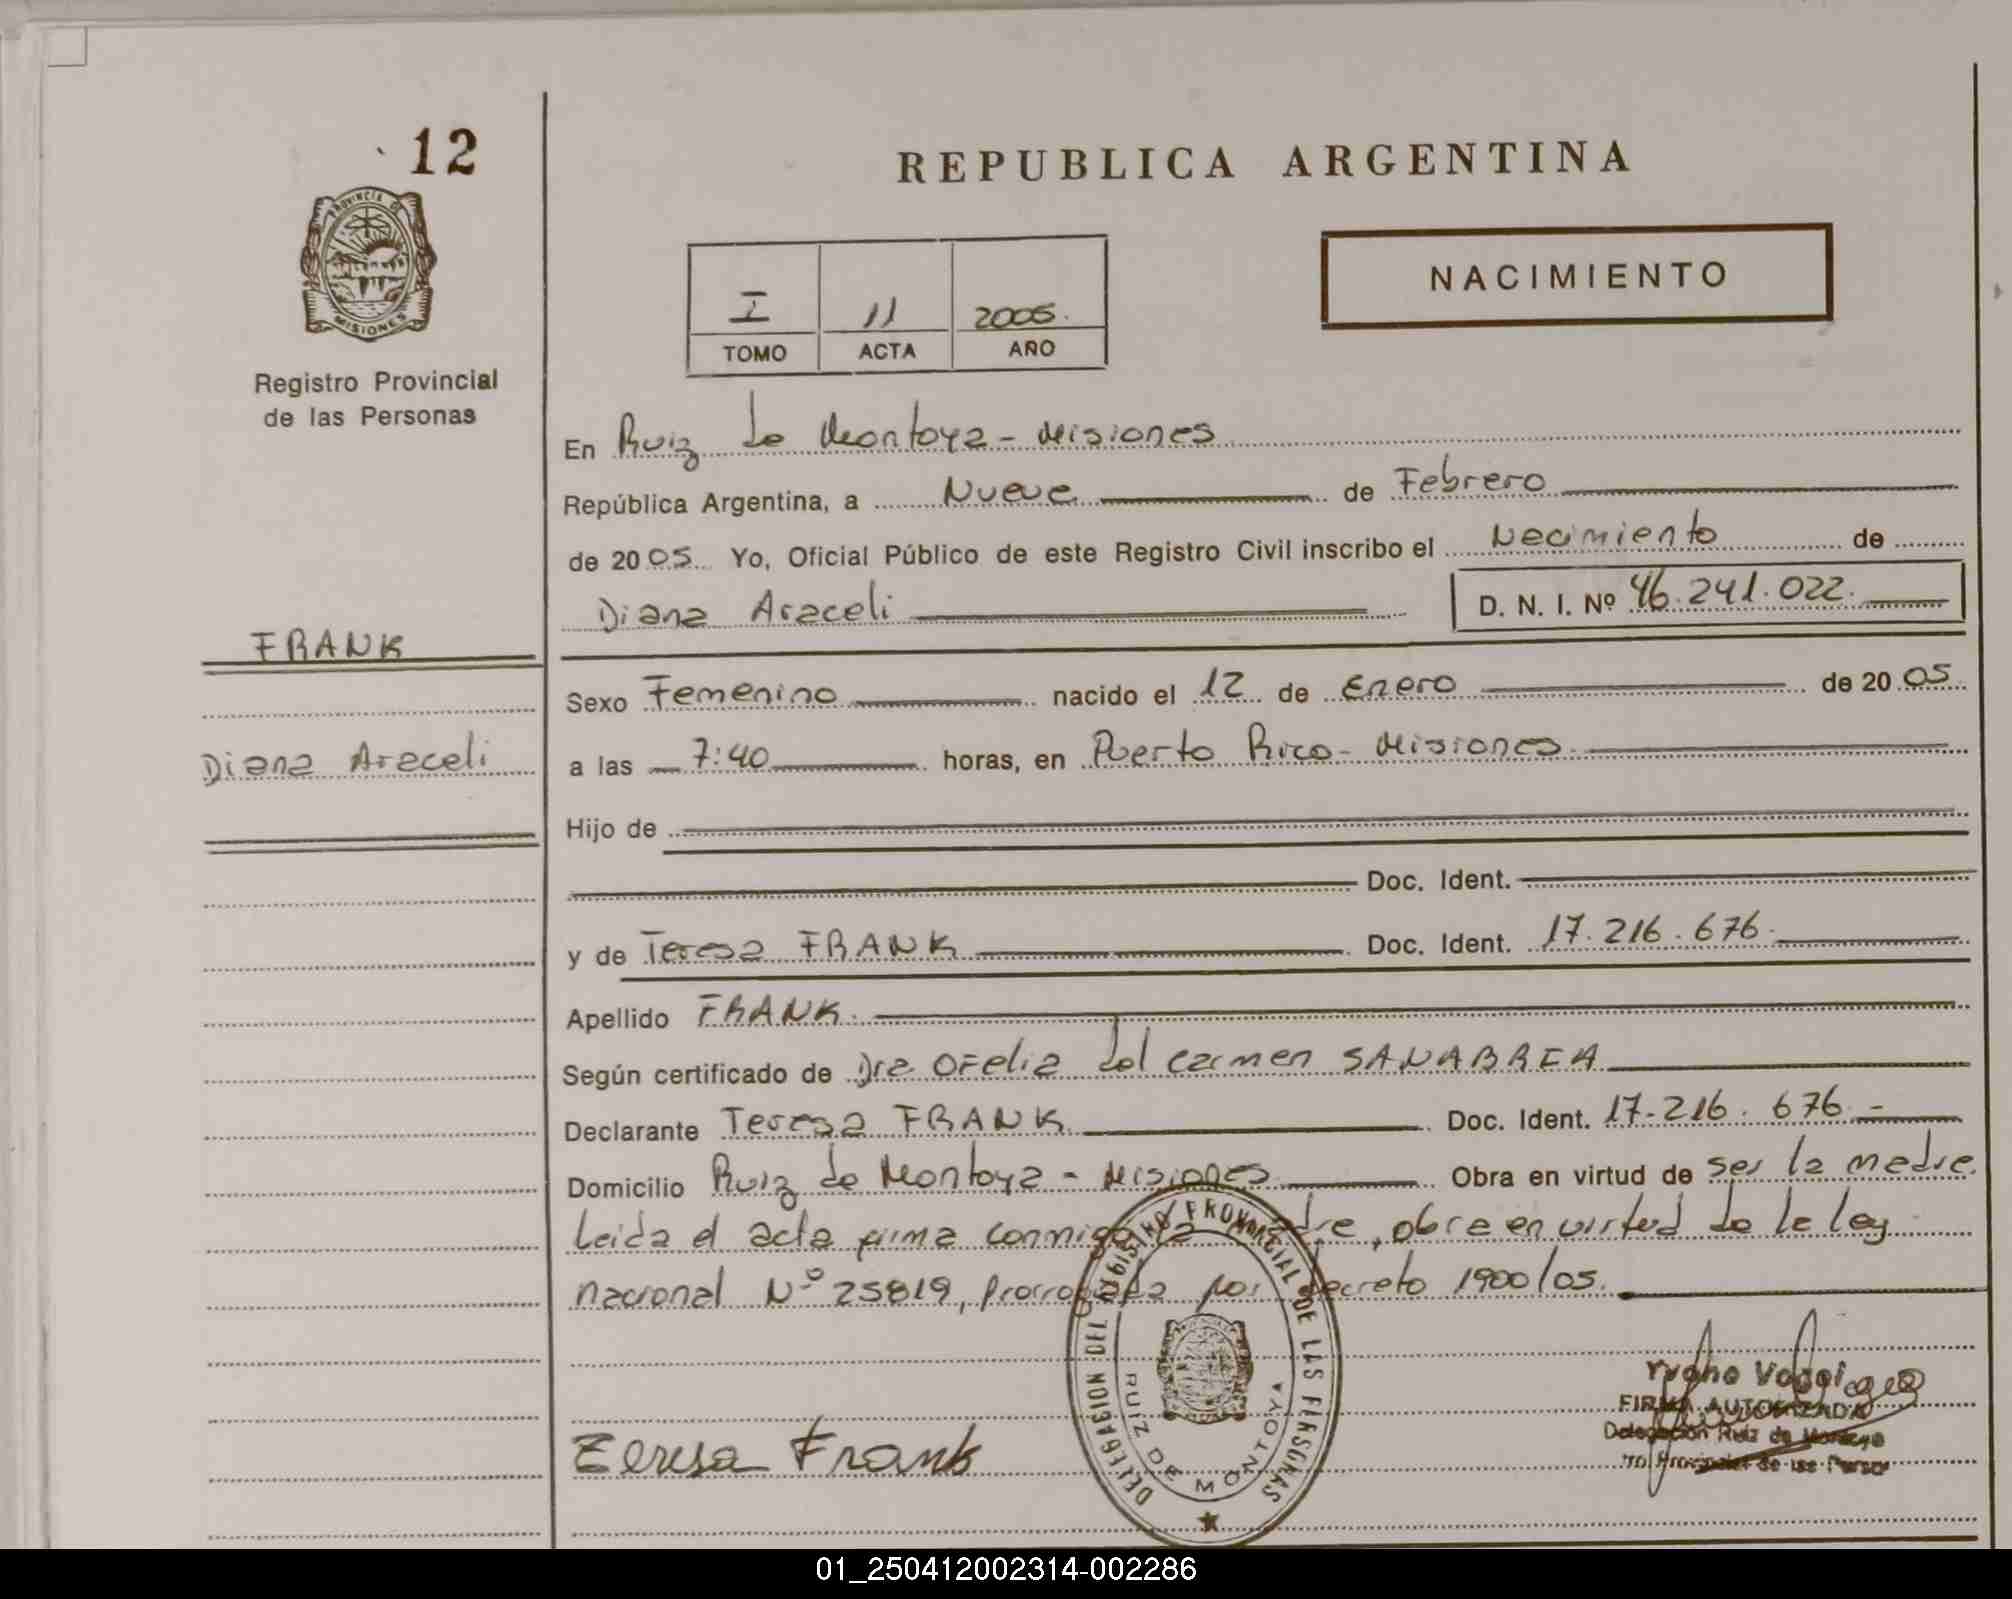 12
PROVINCIA DE
MISIONES
Registro Provincial
de las Personas
FRANK
Diana Araceli
REPUBLICA ARGENTINA
NACIMIENTO
I 11 2005.
TOMO ACTA AÑO
En Ruiz de Montoya - Misiones
República Argentina, a Nueve de Febrero
de 2005. Yo, Oficial Público de este Registro Civil inscribo el Nacimiento de
Diana Araceli D. N. I. Nº 46.241.022.
Sexo Femenino nacido el 12 de Enero de 2005
a las 7:40 horas, en Puerto Rico - Misiones.
Hijo de
Doc. Ident.
y de Teresa FRANK Doc. Ident. 17.216.676.
Apellido FRANK.
Según certificado de Dra Ofelia del Carmen SANABRIA
Declarante Teresa FRANK Doc. Ident. 17.216.676.-
Domicilio Ruiz de Montoya - Misiones Obra en virtud de ser la madre.
Leida el acta firma conmigo la madre, obra en virtud de la ley
nacional Nº 25819, prorrogada por decreto 1900/05.
Teresa Frank
DELEGACION DEL REGISTRO PROVINCIAL DE LAS PERSONAS
RUIZ DE MONTOYA
FIRMA AUTORIZADA
Delegación Ruiz de Montoya
Provincial de las Person
01_250412002314-002286